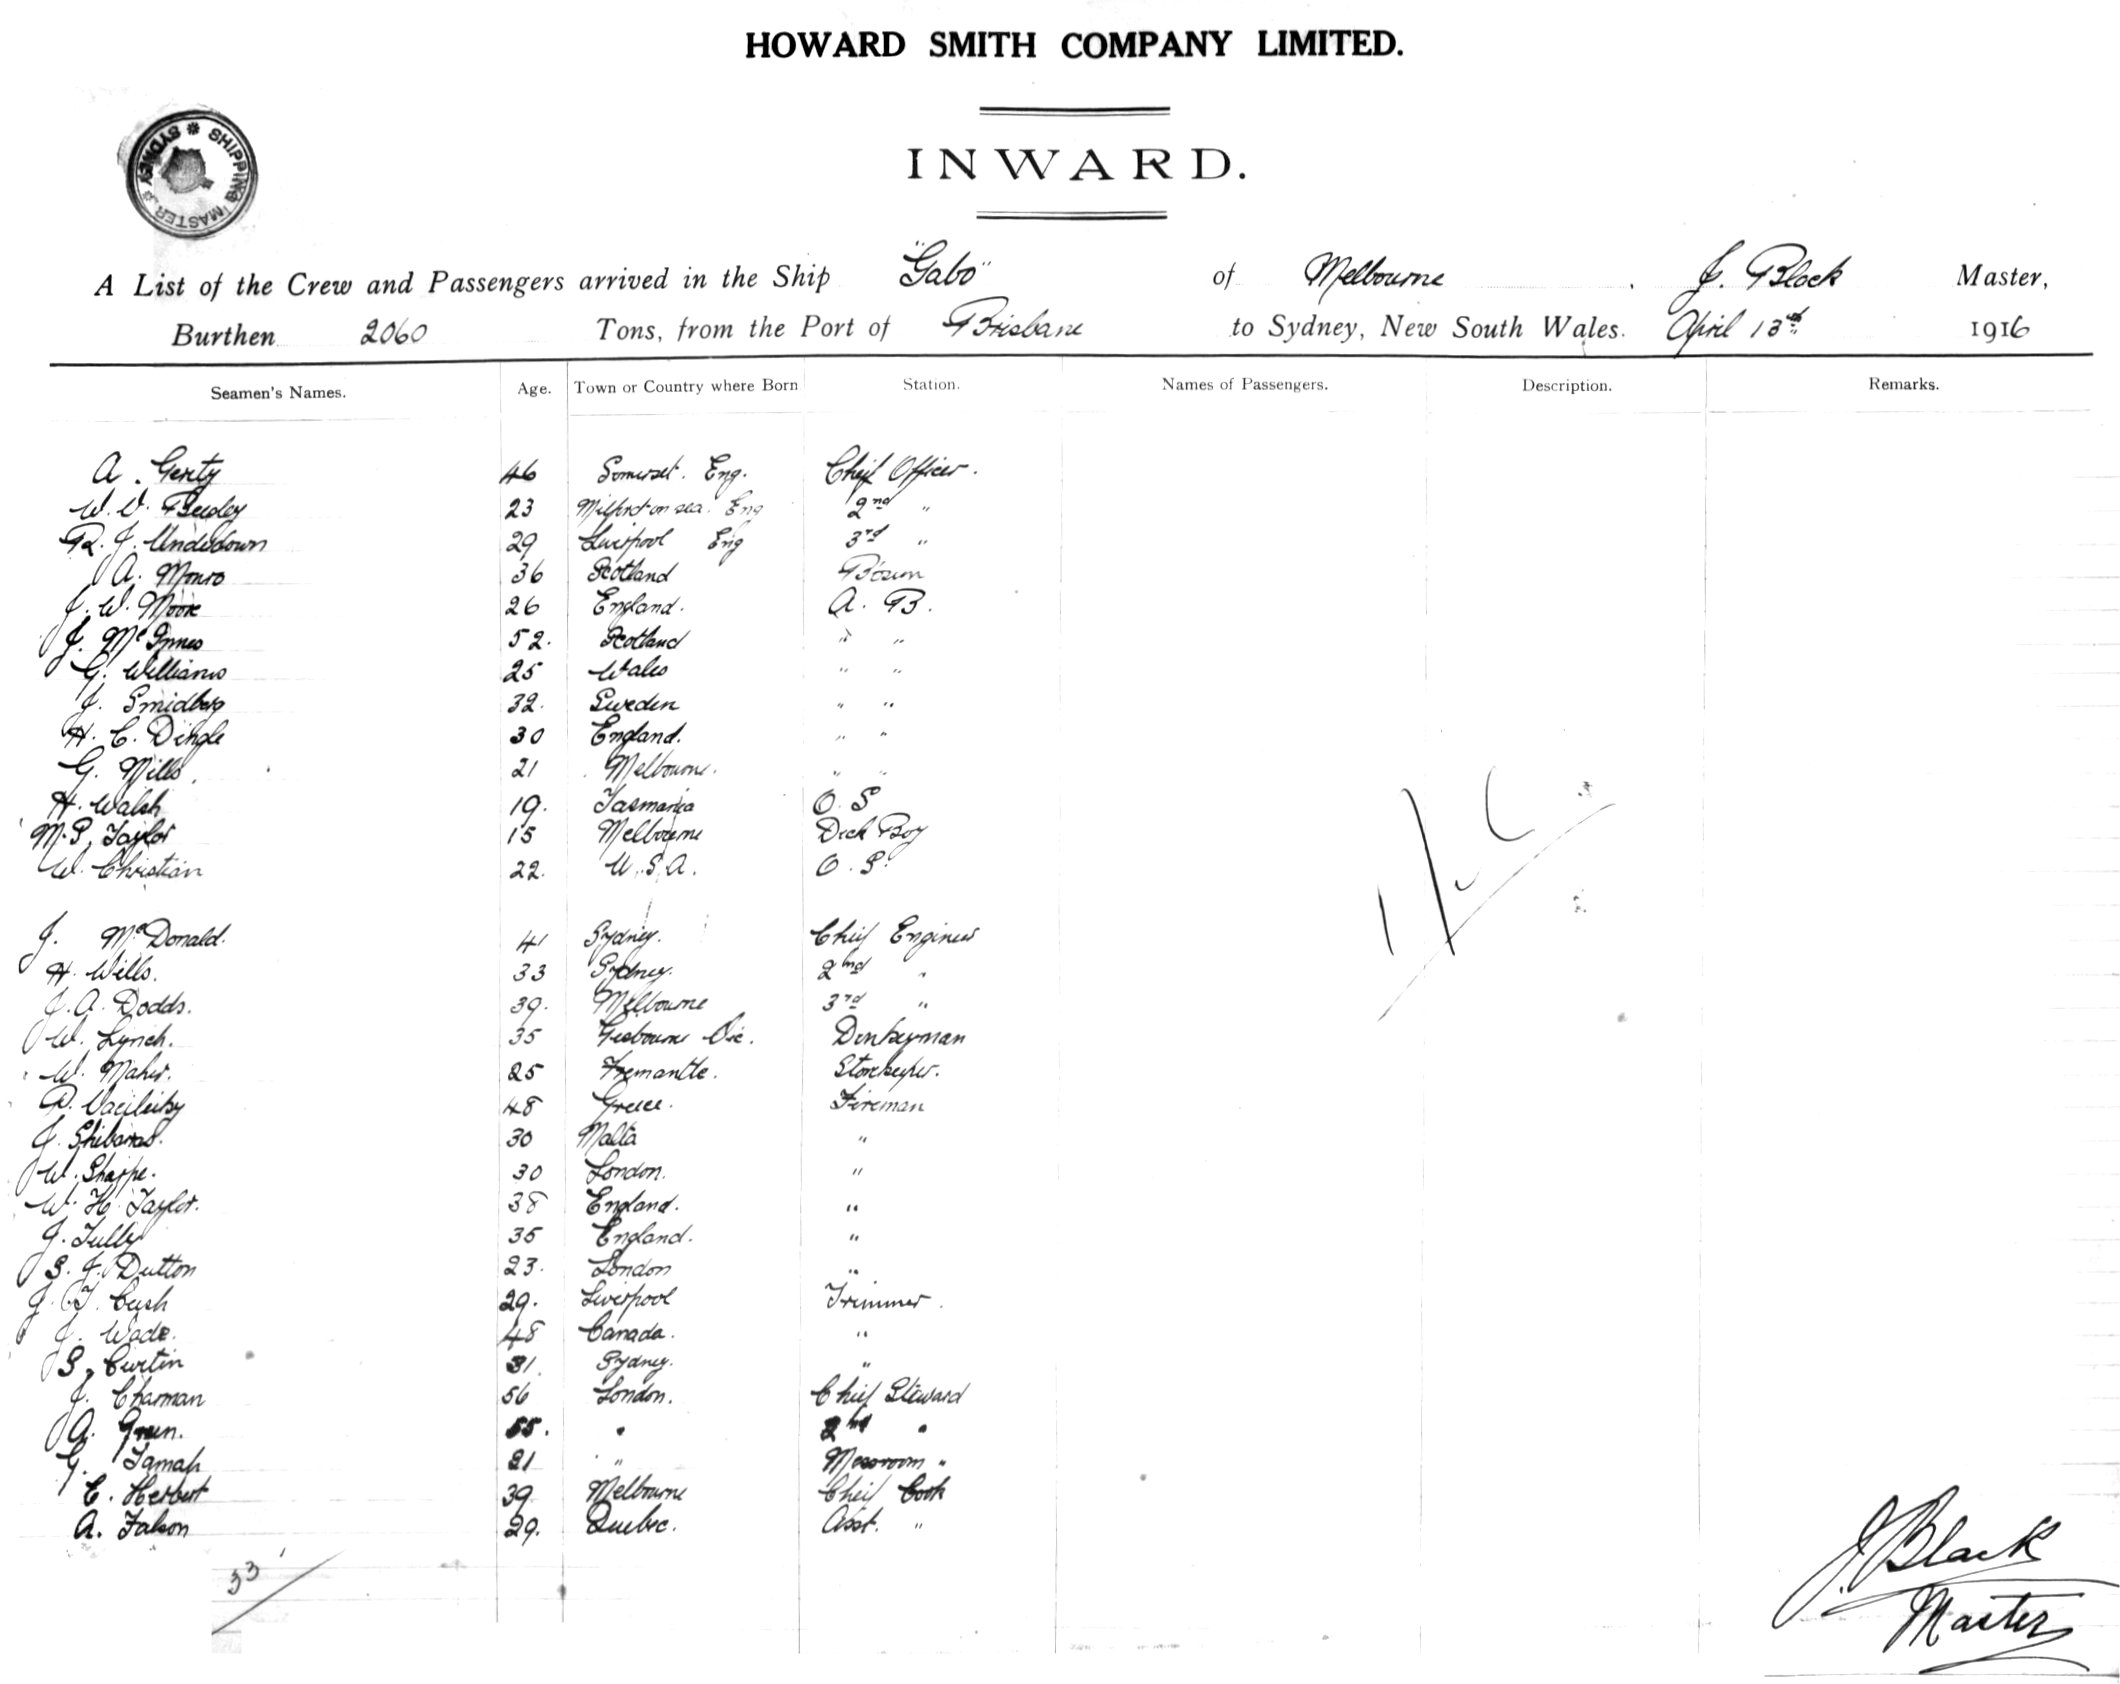 HOWARD SMITH COMPANY LIMITED.
SHIPPING MASTER * SYDNEY *
INWARD.
A List of the Crew and Passengers arrived in the Ship "Gabo" of Melbourne, J. Black Master,
Burthen 2060 Tons, from the Port of Brisbane to Sydney, New South Wales. April 13th 1916
Seamen's Names. Age. Town or Country where Born Station. Names of Passengers. Description. Remarks.
A. Gerity 46 Somerset. Eng. Chief Officer.
W. V. 23 Milford on sea. Eng 2nd "
R. J. Undedown 29 Liverpool Eng 3rd "
A. Monro 36 Scotland Bosun
J. W. Moore 26 England. A. B.
J. McInnes 52. Scotland " "
G. Williams 25 Wales " "
J. Smidberg 32. Sweden " "
H. C. Dingle 30 England. " "
G. Mills. 21 Melbourne. " "
H. Walsh 19. Tasmania O. S
M. P. Taylor 15 Melbourne Deck Boy
W. Christian 22. U.S.A. O. S.
J. McDonald. 41 Sydney. Chief Engineer
H. Wills. 33 Sydney. 2nd "
J. A. Dodds. 39. Melbourne 3rd "
W. Lynch. 35 Gisbourne Vic. Donkeyman
W. Maher. 25 Fremantle. Storekeeper.
48 Greece. Fireman
J. 30 Malta "
W. Sharpe. 30 London. "
W. H. Taylor. 38 England. "
J. Tully 35 England. "
S. J. Dutton 23. London "
J. T. Cush 29. Liverpool Trimmer.
J. Wade. 48 Canada. "
S. Curtin 31. Sydney. "
J. Charman 56 London. Chief Steward
A. Green. 55. " 2nd "
G. Tamah 21 " Messroom "
C. Herbert 39 Melbourne Chief Cook
A. Falson 29. Quebec. Asst. "
33
J Black
Master